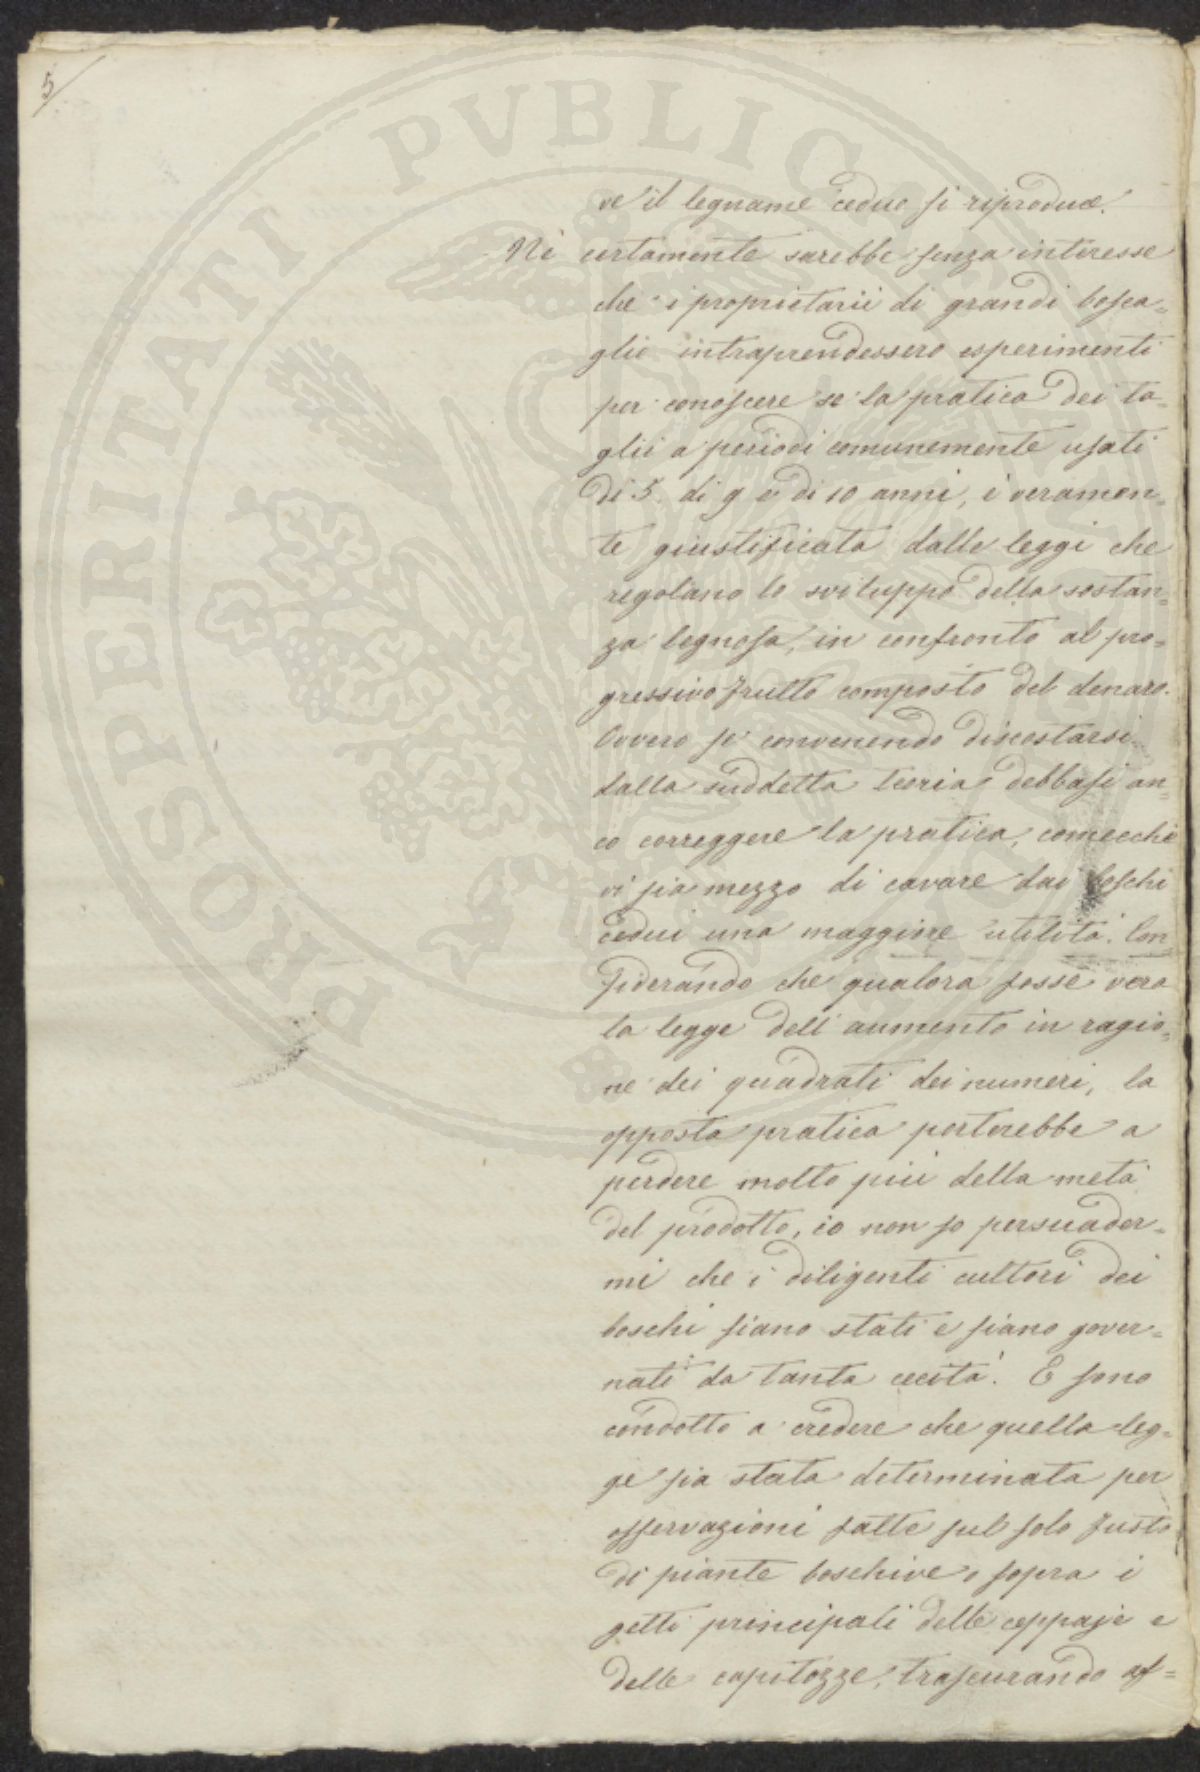 5
PROSPERITATI PVBLICAE
ve il legname ceduo si riproduce.
Nè certamente sarebbe senza interesse
che i proprietarii di grandi bosca=
glie intraprendessero esperimenti
per conoscere se la pratica dei ta=
glii a periodi comunemente usati
di 5. di 9 e di 10 anni, è veramen=
te giustificata dalle leggi che
regolano lo sviluppo della sostan=
za legnosa, in confronto al pro=
gressivo frutto composto del denaro.
Ovvero se convenendo discostarsi
dalla suddetta teoria debbasi an=
co correggere la pratica, comecchè
vi sia mezzo di cavare dai boschi
cedui una maggiore utilità. Con
siderando che qualora fosse vera
la legge dell'aumento in ragio=
ne dei quadrati dei numeri, la
opposta pratica porterebbe a
perdere molto più della metà
del prodotto, io non so persuader=
mi che i diligenti cultori dei
boschi siano stati e siano gover=
nati da tanta cecità. E sono
condotto a credere che quella leg=
ge sia stata determinata per
osservazioni fatte sul solo fusto
di piante boschive, o sopra i
getti principali delle ceppaje e
delle capitozze, trascurando af=